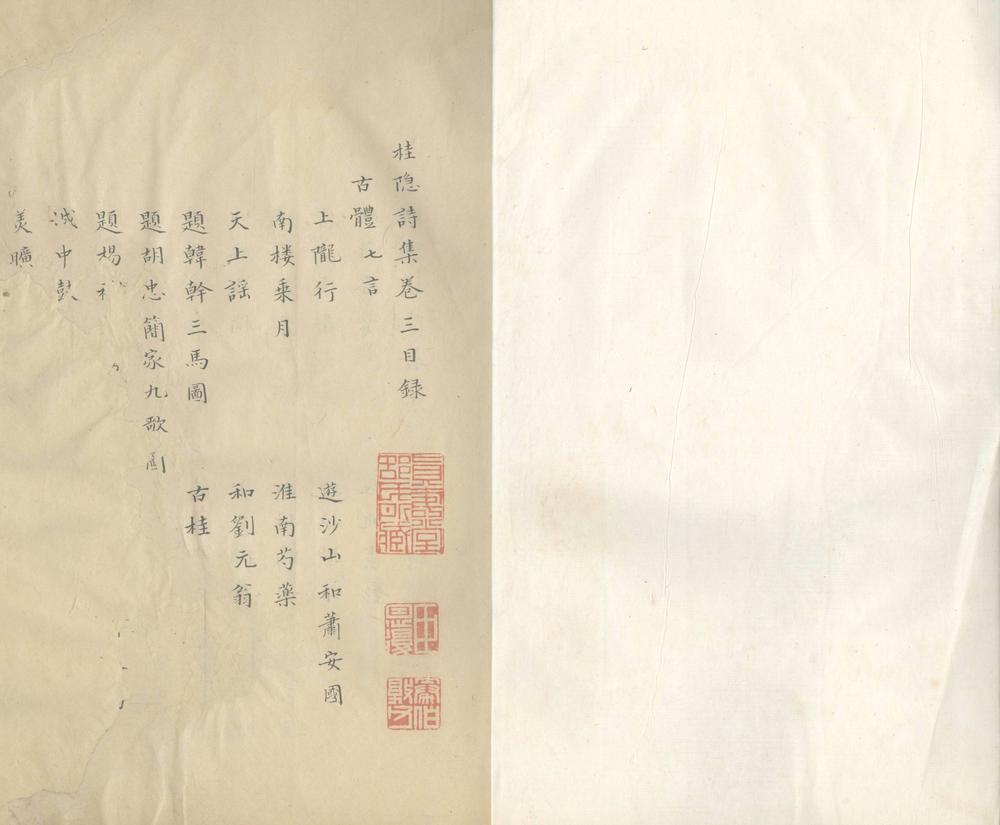 桂隐詩集卷三目録
古體七言
上隴行
遊沙山和蕭安國
南楼乗月
淮南芍薬
天上謡
和劉元翁
題韓幹三馬圖
古桂
題胡忠簡家九歌
題楊
中鼓
羙曠